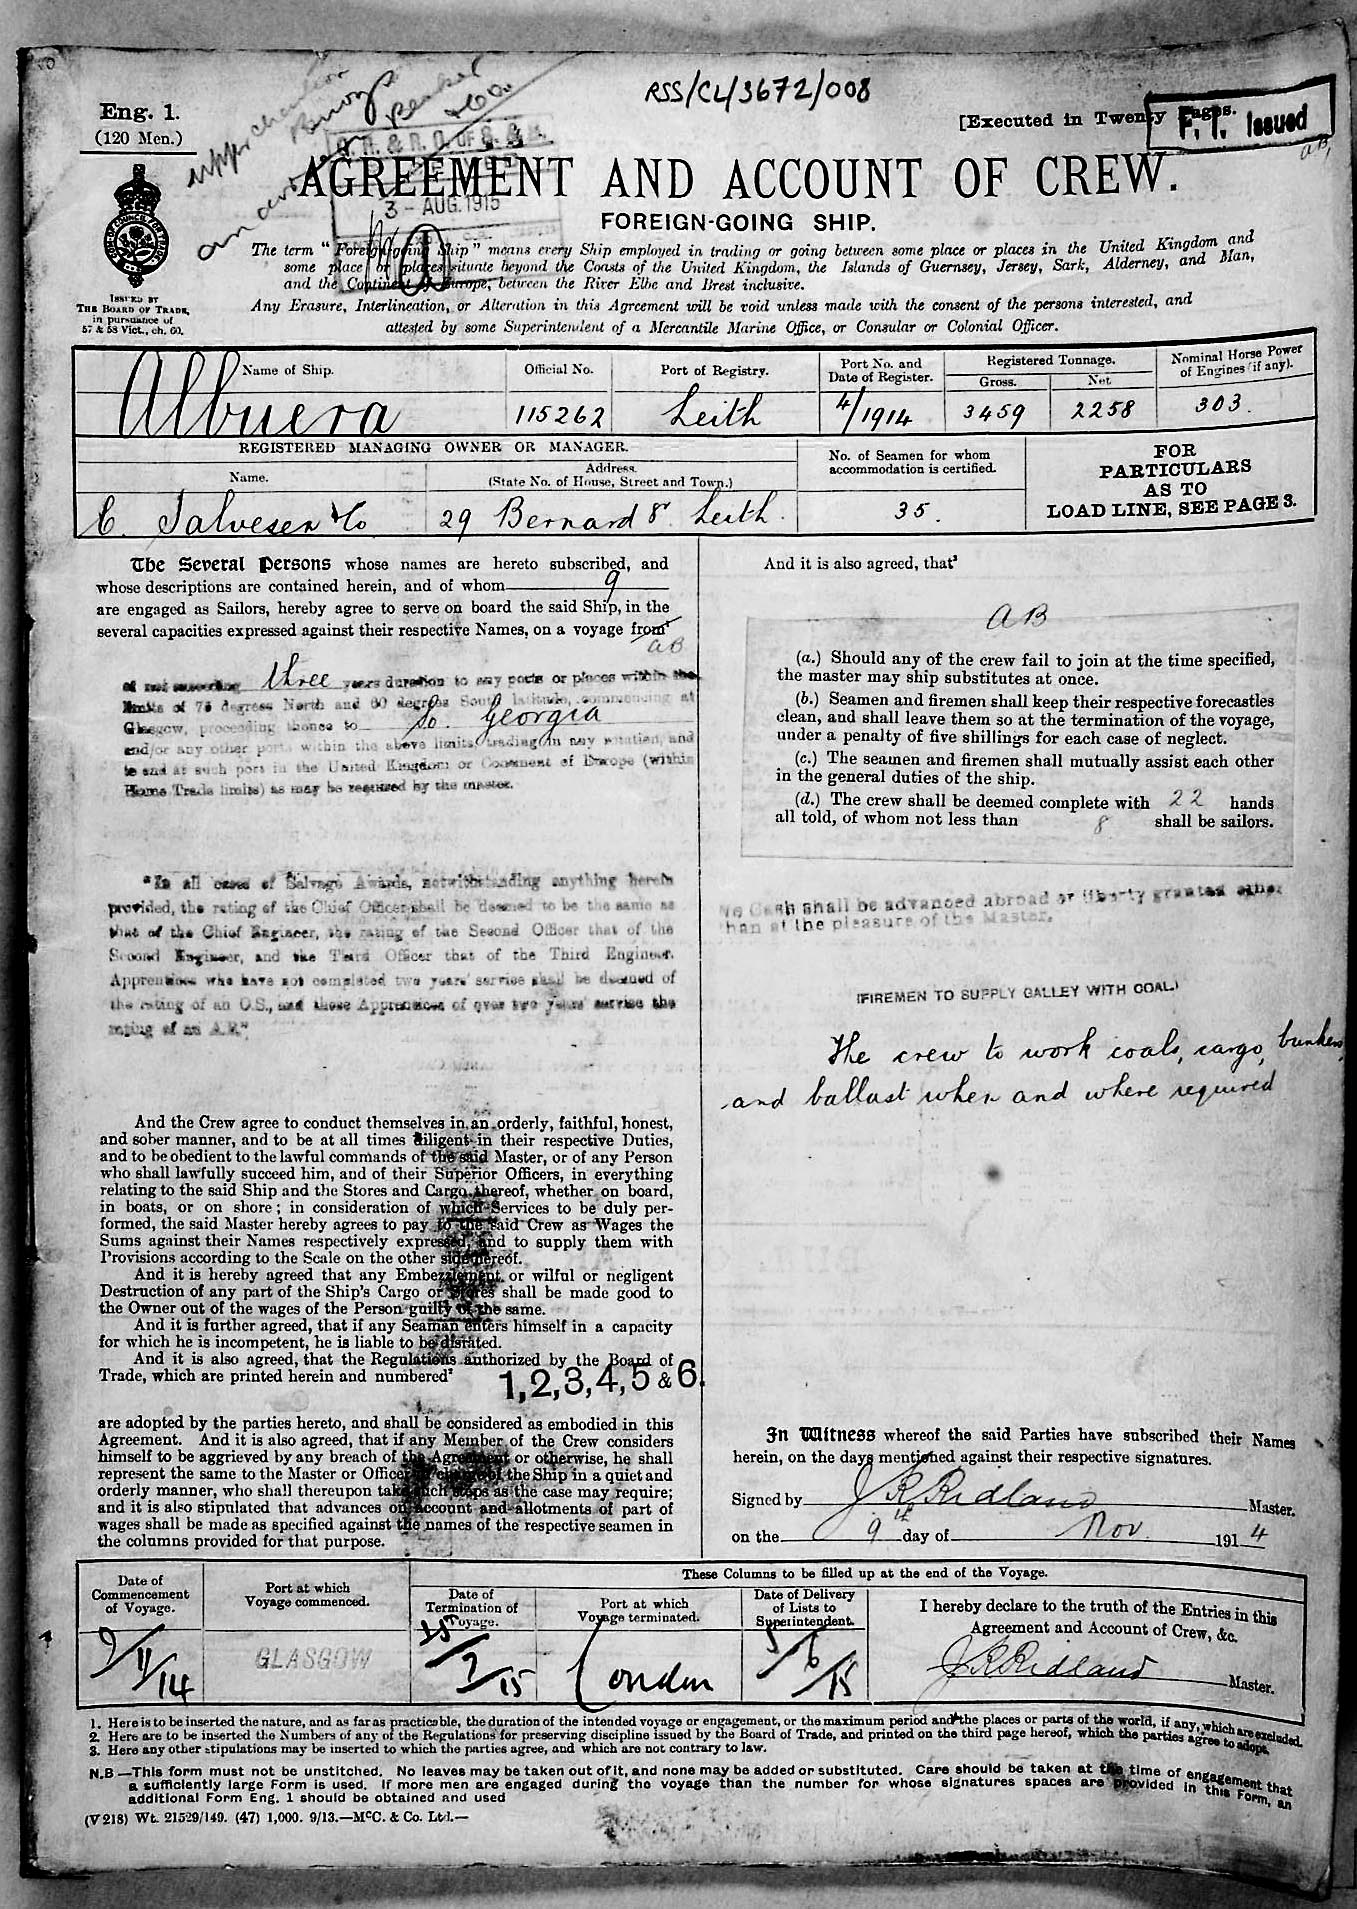 RSS/CL/3672/008
Eng. 1.
(120 Men.)
[Executed in Twenty Pages.
F. I. Issued
AB
R. & R. O. OF S. & S.
3 - AUG. 1915
AGREEMENT AND ACCOUNT OF CREW.
FOREIGN-GOING SHIP.
ISSUED BY
THE BOARD OF TRADE,
in pursuance of
57 & 58 Vict., ch. 60.
The term "Foreign-going Ship" means every Ship employed in trading or going between some place or places in the United Kingdom and
some place or places situate beyond the Coasts of the United Kingdom, the Islands of Guernsey, Jersey, Sark, Alderney, and Man,
and the Continent of Europe, between the River Elbe and Brest inclusive.
Any Erasure, Interlineation, or Alteration in this Agreement will be void unless made with the consent of the persons interested, and
attested by some Superintendent of a Mercantile Marine Office, or Consular or Colonial Officer.
Name of Ship.
Official No.
Port of Registry.
Port No. and
Date of Register.
Registered Tonnage.
Gross.
Net
Nominal Horse Power
of Engines (if any).
Albuera
115262
Leith
4/1914
3459
2258
303.
REGISTERED MANAGING OWNER OR MANAGER.
Name.
Address.
(State No. of House, Street and Town.)
No. of Seamen for whom
accommodation is certified.
FOR
PARTICULARS
AS TO
LOAD LINE, SEE PAGE 3.
C. Salvesen & Co
29 Bernard St Leith.
35.
The Several Persons whose names are hereto subscribed, and
whose descriptions are contained herein, and of whom 9
are engaged as Sailors, hereby agree to serve on board the said Ship, in the
several capacities expressed against their respective Names, on a voyage from¹
AB
of not exceeding three years duration to any ports or places within the
limits of 75 degrees North and 60 degrees South latitude, commencing at
Glasgow, proceeding thence to So. Georgia
and/or any other ports within the above limits, trading in any rotation, and
to end at such port in the United Kingdom or Continent of Europe (within
Home Trade limits) as may be required by the master.
"In all cases of Salvage Awards, notwithstanding anything herein
provided, the rating of the Chief Officer shall be deemed to be the same as
that of the Chief Engineer, the rating of the Second Officer that of the
Second Engineer, and the Third Officer that of the Third Engineer.
Apprentices who have not completed two years' service shall be deemed of
the rating of an O.S., and those Apprentices of over two years' service the
rating of an A.B."
And the Crew agree to conduct themselves in an orderly, faithful, honest,
and sober manner, and to be at all times diligent in their respective Duties,
and to be obedient to the lawful commands of the said Master, or of any Person
who shall lawfully succeed him, and of their Superior Officers, in everything
relating to the said Ship and the Stores and Cargo thereof, whether on board,
in boats, or on shore; in consideration of which Services to be duly per-
formed, the said Master hereby agrees to pay to the said Crew as Wages the
Sums against their Names respectively expressed, and to supply them with
Provisions according to the Scale on the other side hereof.
And it is hereby agreed that any Embezzlement or wilful or negligent
Destruction of any part of the Ship's Cargo or Stores shall be made good to
the Owner out of the wages of the Person guilty of the same.
And it is further agreed, that if any Seaman enters himself in a capacity
for which he is incompetent, he is liable to be disrated.
And it is also agreed, that the Regulations authorized by the Board of
Trade, which are printed herein and numbered² 1, 2, 3, 4, 5 & 6.
are adopted by the parties hereto, and shall be considered as embodied in this
Agreement. And it is also agreed, that if any Member of the Crew considers
himself to be aggrieved by any breach of the Agreement or otherwise, he shall
represent the same to the Master or Officer in charge of the Ship in a quiet and
orderly manner, who shall thereupon take such steps as the case may require;
and it is also stipulated that advances on account and allotments of part of
wages shall be made as specified against the names of the respective seamen in
the columns provided for that purpose.
And it is also agreed, that³
AB
(a.) Should any of the crew fail to join at the time specified,
the master may ship substitutes at once.
(b.) Seamen and firemen shall keep their respective forecastles
clean, and shall leave them so at the termination of the voyage,
under a penalty of five shillings for each case of neglect.
(c.) The seamen and firemen shall mutually assist each other
in the general duties of the ship.
(d.) The crew shall be deemed complete with 22 hands
all told, of whom not less than 8 shall be sailors.
No Cash shall be advanced abroad or liberty granted other
than at the pleasure of the Master.
(FIREMEN TO SUPPLY GALLEY WITH COAL)
The crew to work coals, cargo, bunkers,
and ballast when and where required
In Witness whereof the said Parties have subscribed their Names
herein, on the days mentioned against their respective signatures.
Signed by J R Ridland Master.
on the 9th day of Nov. 1914
Date of
Commencement
of Voyage.
Port at which
Voyage commenced.
These Columns to be filled up at the end of the Voyage.
Date of
Termination of
Voyage.
Port at which
Voyage terminated.
Date of Delivery
of Lists to
Superintendent.
I hereby declare to the truth of the Entries in this
Agreement and Account of Crew, &c.
9/11/14
GLASGOW
London
J R Ridland Master.
1. Here is to be inserted the nature, and as far as practicable, the duration of the intended voyage or engagement, or the maximum period and the places or parts of the world, if any, which are excluded.
2. Here are to be inserted the Numbers of any of the Regulations for preserving discipline issued by the Board of Trade, and printed on the third page hereof, which the parties agree to adopt.
3. Here any other stipulations may be inserted to which the parties agree, and which are not contrary to law.
N.B—This form must not be unstitched. No leaves may be taken out of it, and none may be added or substituted. Care should be taken at the time of engagement that
a sufficiently large Form is used. If more men are engaged during the voyage than the number for whose signatures spaces are provided in this Form, an
additional Form Eng. 1 should be obtained and used
(V 218) Wt. 21529/149. (47) 1,000. 9/13.—McC. & Co. Ltd.—